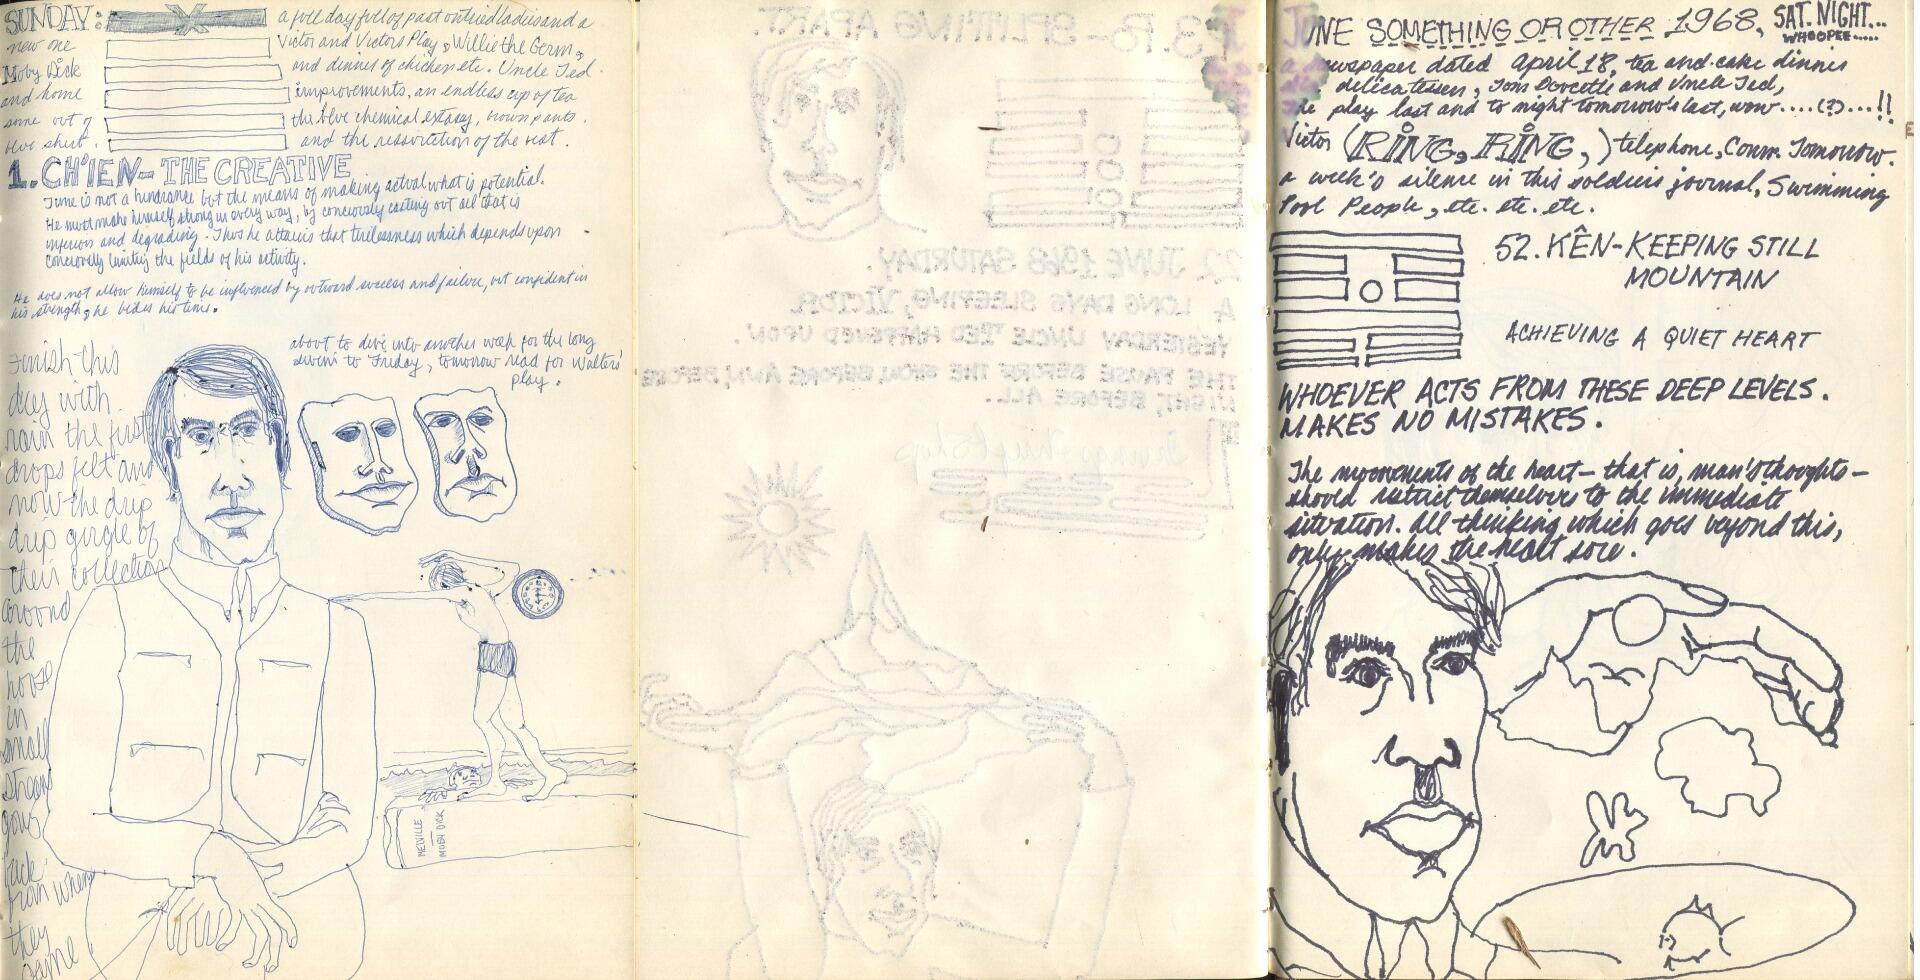 SUNDAY:
new one
Moby Dick
and home
some out of
blue shirt.
a full day full of past ontried ladies and a
Victor and Victors Play, Willie the Germ,
and dinner of chicken etc. Uncle Ted.
improvements, an endless cup of tea
the blue chemical extasy, brown pants.
and the resssitation of the rest.
1. CH'IEN - THE CREATIVE
Time is not a hindrance but the means of making actual what is potential.
He must make himself strong in every way, by conciously casting out all that is
inferior and degrading. Thus he attains that tirelessness which depends upon
conciously limiting the fields of his activity.
He does not allow himself to be influenced by outward success and failure, but confident in
his strength, he bides his time.
about to dive into another week for the long
swim to Friday, tomorrow read for Walters'
play.
Finish this
day with
rain the first
drops felt and
now the drip
drip gurgle of
their collection
around
the
house
in
small
stream
goes
back
from where
they
came
MELVILLE
MOBY DICK
23. Po - SPLITTING APART.
22 JUNE 1968 SATURDAY.
A LONG DAYS SLEEPING, VICTOR.
YESTERDAY UNCLE TED HAPPENED UPON.
THE PAUSE BEFORE THE SHOW, BEFORE AWN, BEFORE
NIGHT, BEFORE ALL.
JUNE SOMETHING OR OTHER 1968, SAT. NIGHT...
WHOOPEE.....
a newspaper dated April 18, tea and cake dinner
delicatessen, Tom Docette and Uncle Ted,
the play last and to night tomorrow's last, wow....(?)...!!
Victor (RING, RING,) telephone, Conn. Tomorrow.
a week's silence in this soldiers journal, Swimming
Pool People, etc. etc. etc.
52. KÊN - KEEPING STILL
MOUNTAIN
ACHIEVING A QUIET HEART
WHOEVER ACTS FROM THESE DEEP LEVELS.
MAKES NO MISTAKES.
The movements of the heart - that is, man's thoughts -
should restrict themselves to the immediate
situation. All thinking which goes beyond this,
only makes the heart sore.